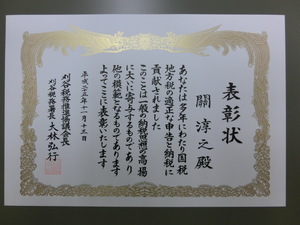 表彰状
關淳之殿
あなたは多年にわたり国税
地方税の適正な申告と納税に
貢献されました
このことは一般の納税思想の高揚
に大いに寄与するものであり
他の模範となるものであります
よってここに表彰いたします
平成二十五年十一月十三日
刈谷税務推進協議会長
刈谷税務署長 大林弘行